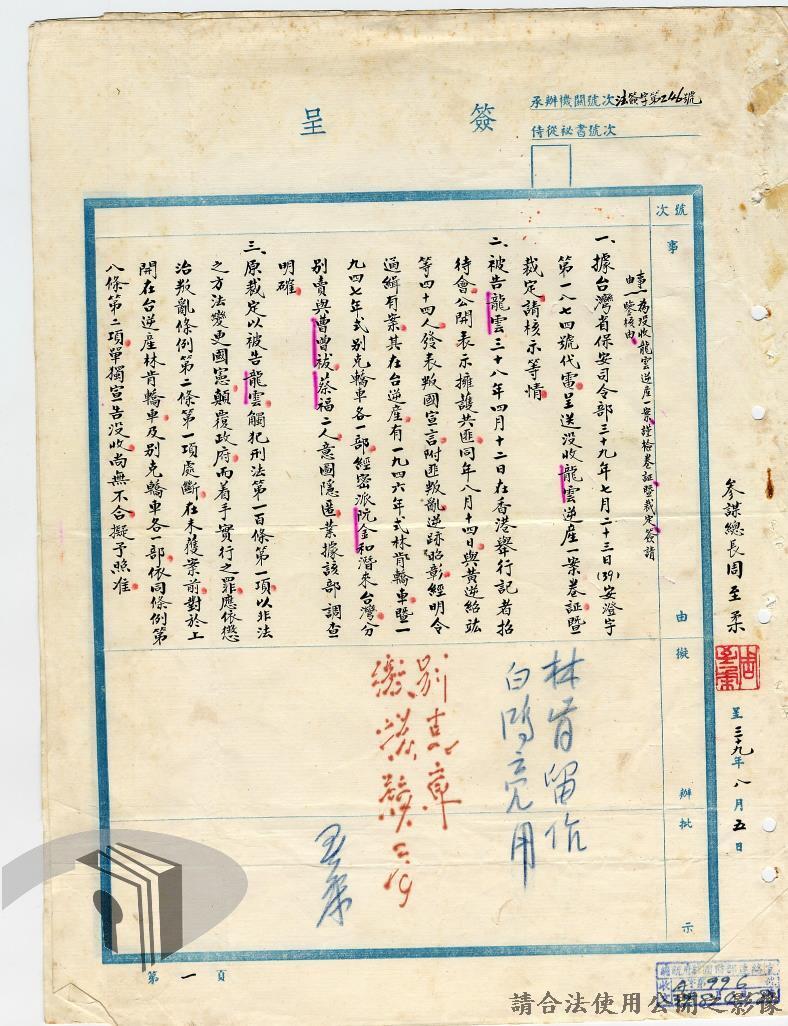 簽呈
承辦機關號次法簽字第246號
侍從祕書號次
參謀總長周至柔
呈三十九年八月五日
號次
事由
擬辦
批示
事由 為沒收龍雲逆產一案謹檢卷証暨裁定簽請鑒核由
一、據台灣省保安司令部三十九年七月二十三日(39)安澄字
第一八七四號代電呈送沒收龍雲逆產一案卷証暨
裁定請核示等情
二、被告龍雲三十八年四月十二日在香港舉行記者招
待會公開表示擁護共匪同年八月十四日與黃逆紹竑
等四十四人發表叛國宣言附匪叛亂逆跡昭彰經明令
通緝有案其在台逆產有一九四六年式林肯轎車暨一
九四七年式別克轎車各一部經密派阮金和潛來台灣分
別賣與曹曾祓蔡福二人意圖隱匿業據該部調查
明確
三、原裁定以被告龍雲觸犯刑法第一百條第一項以非法
之方法變更國憲顛覆政府而着手實行之罪應依懲
治叛亂條例第二條第一項處斷在未獲案前對於上
開在台逆產林肯轎車及別克轎車各一部依同條例第
八條第二項單獨宣告沒收尚無不合擬予照准
林肯留作
白鴻亮用
別克車
至柔
第一頁
請合法使用公開之影像